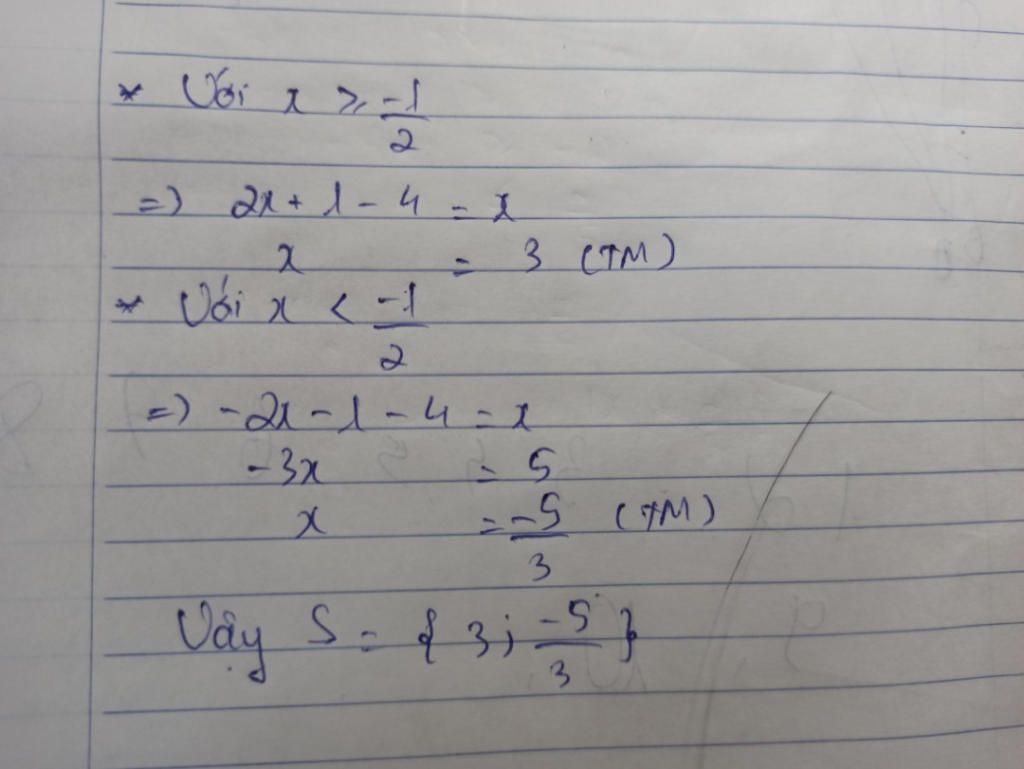 * Với x ≥ -1/2
=) 2x + 1 - 4 = x
x = 3 (TM)
* Với x < -1/2
=) -2x - 1 - 4 = x
-3x = 5
x = -5/3 (TM)
Vậy S = { 3; -5/3 }